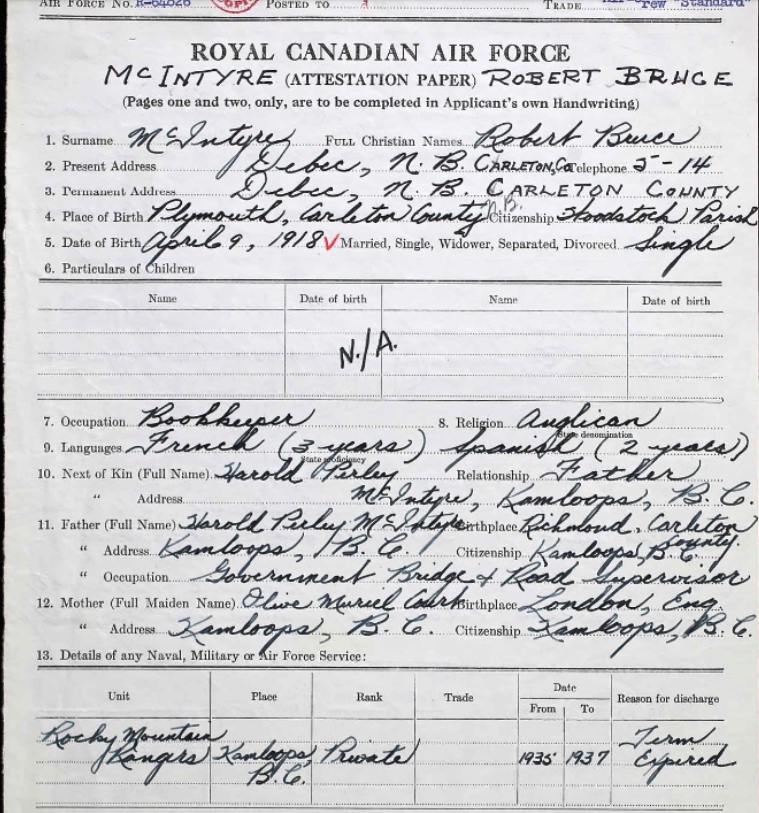 AIR FORCE No. R-64626 POSTED TO TRADE "Standard"
ROYAL CANADIAN AIR FORCE
McINTYRE (ATTESTATION PAPER) ROBERT BRUCE
(Pages one and two, only, are to be completed in Applicant's own Handwriting)
1. Surname McIntyre FULL Christian Names Robert Bruce
2. Present Address Debec, N. B. CARLETON, Co. Telephone 5-14
3. Permanent Address Debec, N. B. CARLETON COUNTY
4. Place of Birth Plymouth, Carleton County N.B. Citizenship Woodstock Parish
5. Date of Birth April 9, 1918 Married, Single, Widower, Separated, Divorced Single
6. Particulars of Children
Name Date of birth Name Date of birth
N./A.
7. Occupation Bookkeeper 8. Religion Anglican
State denomination
9. Languages French (3 years) Spanish (2 years)
State proficiency
10. Next of Kin (Full Name) Harold Perley Relationship Father
" Address McIntyre, Kamloops, B. C.
11. Father (Full Name) Harold Perley McIntyre Birthplace Richmond, Carleton County.
" Address Kamloops, B. C. Citizenship Kamloops, B. C.
" Occupation Government Bridge & Road Supervisor
12. Mother (Full Maiden Name) Olive Muriel Court Birthplace London, Eng.
" Address Kamloops, B. C. Citizenship Kamloops, B. C.
13. Details of any Naval, Military or Air Force Service:
Unit Place Rank Trade Date Reason for discharge
From To
Rocky Mountain Term
Rangers Kamloops, Private 1935 1937 Expired
B.C.